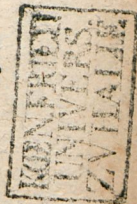 KÖN.FRIED:
UNIVERS.
ZV HALLE